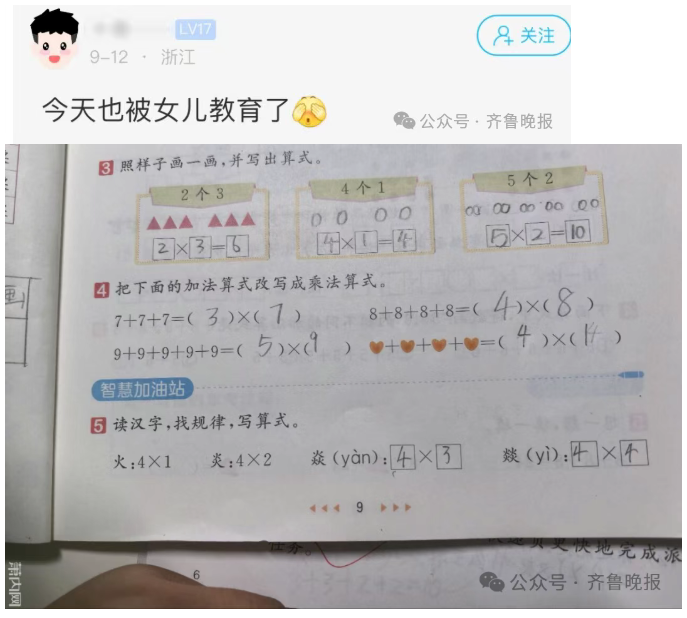 LV17
9-12 · 浙江
关注
今天也被女儿教育了
公众号 · 齐鲁晚报
3 照样子画一画,并写出算式。
2个3 4个1 5个2
2×3=6 4×1=4 5×2=10
4 把下面的加法算式改写成乘法算式。
7+7+7=( 3 )×( 7 ) 8+8+8+8=( 4 )×( 8 )
9+9+9+9+9=( 5 )×( 9 ) 🧡+🧡+🧡+🧡=( 4 )×( 14 )
智慧加油站
5 读汉字,找规律,写算式。
火:4×1 炎:4×2 焱(yàn):4×3 燚(yì):4×4
9
任务。
更快地完成派
6
公众号 · 齐鲁晚报